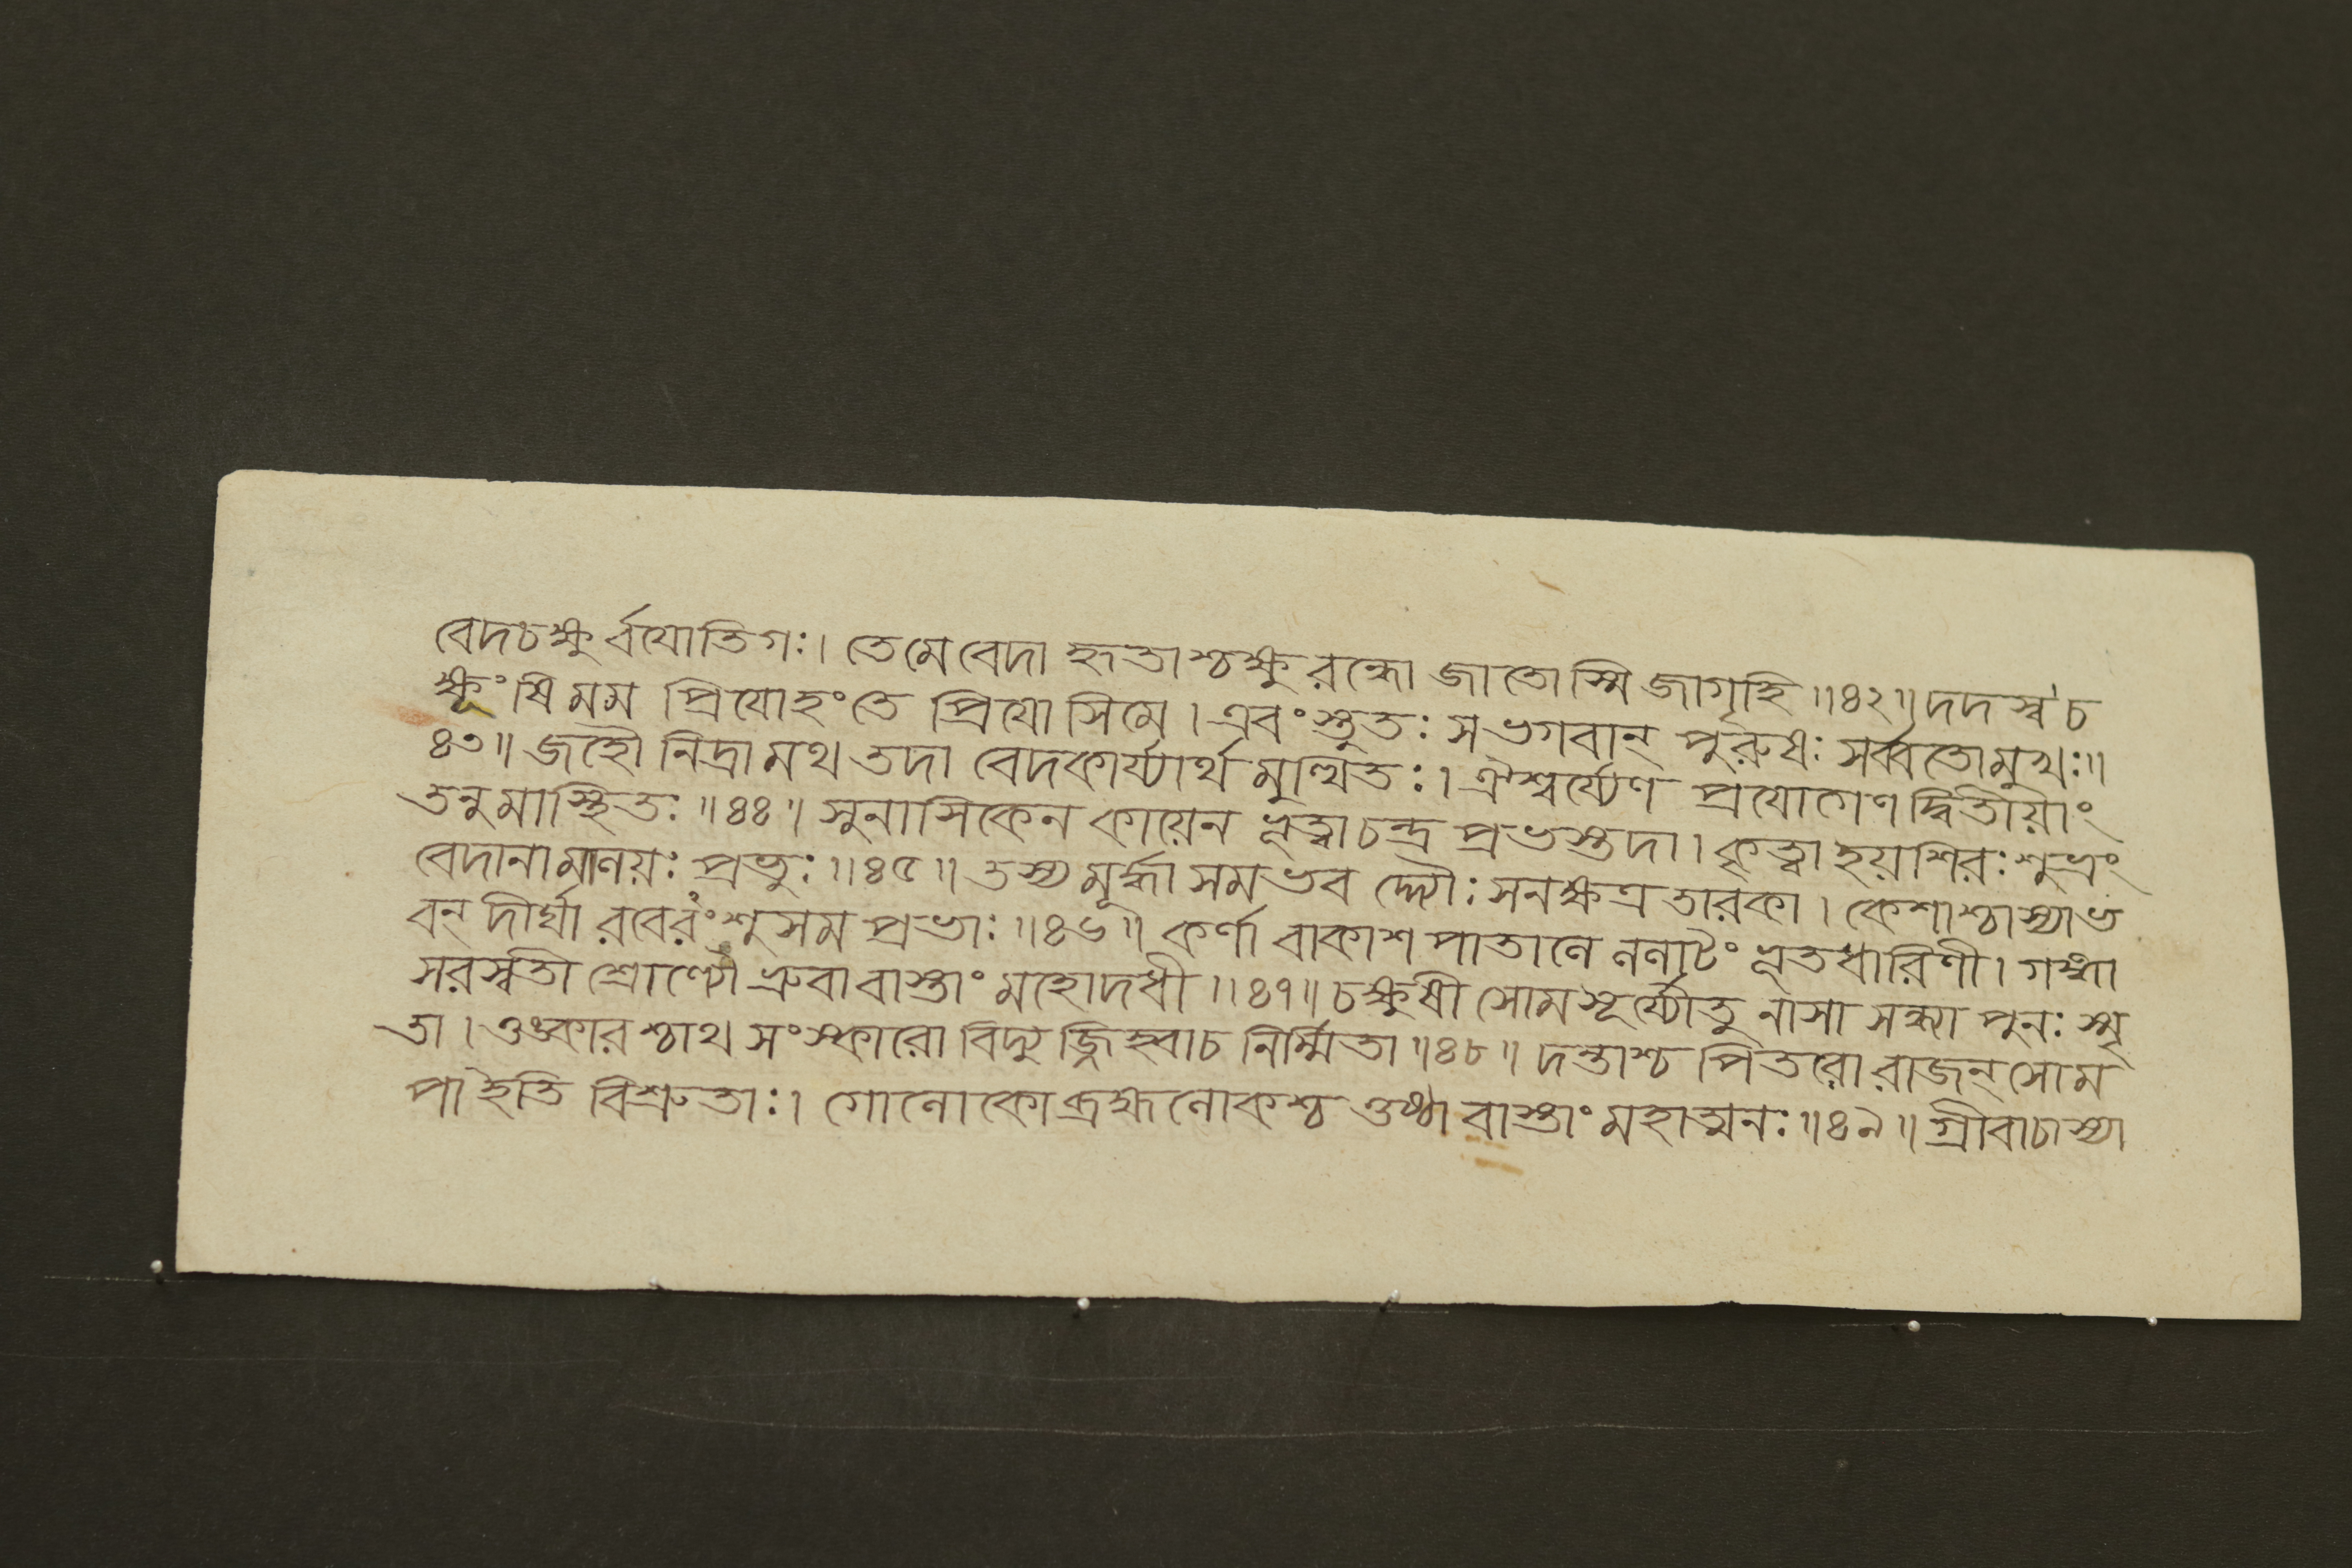 বেদচক্ষুর্বযোতিগঃ। তেমেবেদা হৃতাশ্চক্ষুরন্ধো জাতোস্মি জাগৃহি॥৪২॥ দদস্ব চ
ক্ষূংষি মম প্রিযোহংতে প্রিযো সিমে। এবং স্তুতঃ সভগবান্ পুরুষঃ সর্ব্বতোমুখঃ॥
৪৩॥ জহৌ নিদ্রামথ তদা বেদকার্য্যার্থমুত্থিতঃ। ঐশ্বর্য্যেণ প্রযোগেণ দ্বিতীয়াং
তনুমাস্থিতঃ॥৪৪॥ সুনাসিকেন কায়েন ভূত্বা চন্দ্র প্রভস্তদা। কৃত্বা হয়শিরঃ শুভ্রং
বেদানামালয়ঃ প্রভুঃ॥৪৫॥ তস্য মূর্দ্ধা সমভব দ্দ্যৌঃ সনক্ষত্র তারকা। কেশাশ্চাস্যাভ
বন্ দীর্ঘা রবেরংশুসম প্রভাঃ॥৪৬॥ কর্ণা বাকাশ পাতালে ললাটং ভূতধারিণী। গঙ্গা
সরস্বতী শ্রোণ্যৌ ভ্রুবাবাস্তাং মহোদধী॥৪৭॥ চক্ষুষী সোমসূর্য্যৌতু নাসা সন্ধ্যা পুনঃ স্মৃ
তা। ওঙ্কারশ্চাথ সংস্কারো বিদ্যুজ্জিহ্বাচ নির্ম্মিতা॥৪৮॥ দন্তাশ্চ পিতরো রাজন্ সোম
পা ইতি বিশ্রুতাঃ। গোলোকো ব্রহ্মলোকশ্চ ওষ্ঠাবাস্তাং মহাত্মনঃ॥৪৯॥ গ্রীবাচাস্যা